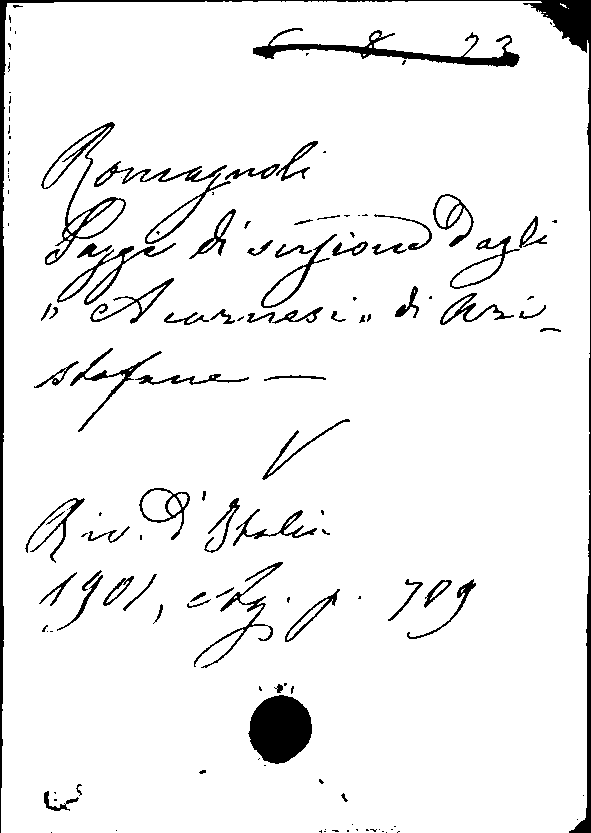 6. 8. 23
Romagnoli
Saggi di versione dagli
"Acarnesi" di Ari-
stofane —
V
Riv. d'Italia
1901, p. 709